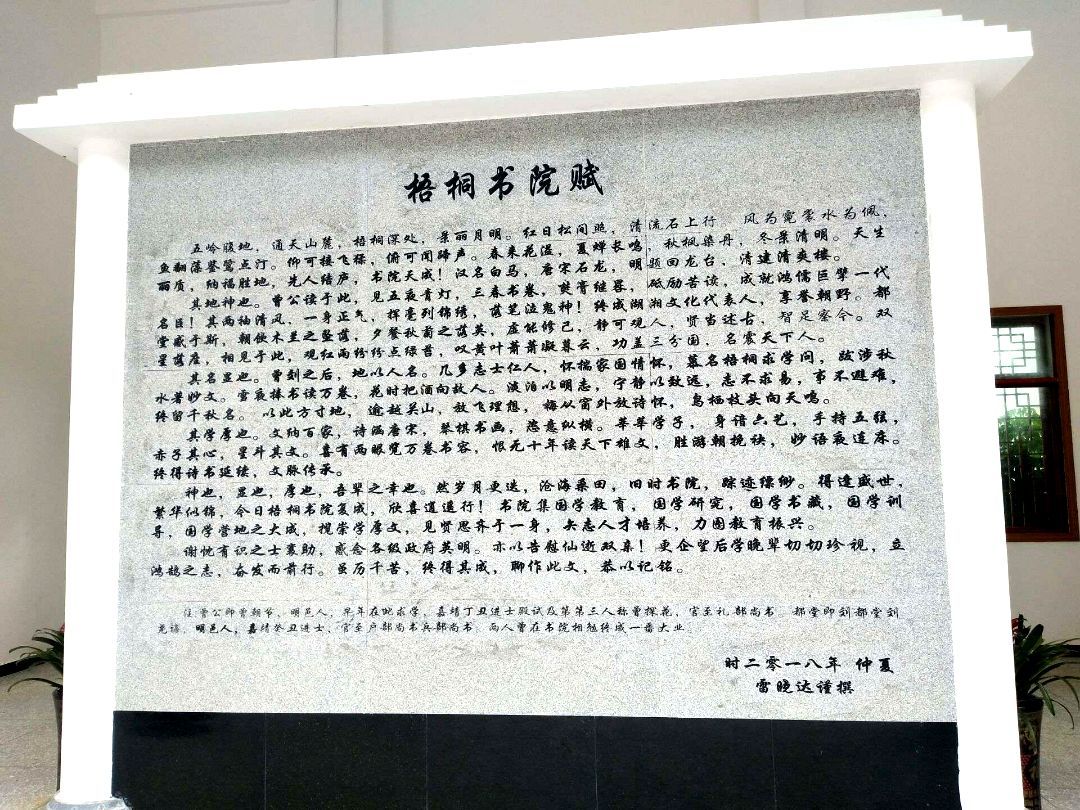 梧桐书院赋
五岭腹地，通天山麓，梧桐深处，景丽月明。红日松间照，清流石上行 风为霓裳水为佩，
鱼翻藻鉴鹭点汀。仰可接飞猱，俯可闻蹄声。春来花溢，夏蝉长鸣，秋枫染丹，冬景清明。天生
丽质，纳福胜地，先人结庐，书院天成！汉名白马，唐宋石龙，明题回龙台，清建清爽楼。
其地神也。曾公读于此，见五夜青灯，三春书卷，焚膏继晷，砥励苦读，成就鸿儒巨擘一代
名臣！其两袖清风，一身正气，挥毫列锦绣，落笔泣鬼神！终成湖湘文化代表人，享誉朝野。都
堂感于斯，朝饮木兰之坠落，夕餐秋菊之落英，虚能修己，静可观人，贤当述古，智足察今。双
星落座，相见于此，观红雨纷纷点绿苔，叹黄叶萧萧凝暮云，功盖三分国，名震天下人。
其名显也。曾刘之后，地以人名。几多志士仁人，怀揣家国情怀，慕名梧桐求学问，跋涉秋
水著妙文。雪夜捧书读万卷，花时把酒向故人。淡泊以明志，宁静以致远，志不求易，事不避难，
终留千秋名。 以此方寸地，逾越关山，放飞理想，梅从窗外放诗怀，鸟栖枝头向天鸣。
其学厚也。文纳百家，诗涵唐宋，琴棋书画，恣意纵横。莘莘学子，身谙六艺，手持五弦，
赤子其心，星斗其文。喜有两眼览万卷书容，恨无十年读天下雄文，胜游朝挽袂，妙语夜连床。
终得诗书延续，文脉传承。
神也，显也，厚也，吾辈之幸也。然岁月更迭，沧海桑田，旧时书院，踪迹缥缈。得逢盛世，
繁华似锦，今日梧桐书院复成，欣喜道遥行！书院集国学教育，国学研究，国学书藏，国学训
导，国学营地之大成，概崇学厚文，见贤思齐于一身，矢志人才培养，力图教育振兴。
谢忱有识之士襄助，感念各级政府英明。亦以告慰仙逝双亲！更企望后学晚辈切切珍视，立
鸿鹄之志，奋发而前行。虽历千苦，终得其成，聊作此文，恭以记铭。
注：曾公即曾朝节，明邑人，早年在此求学，嘉靖丁丑进士殿试及第第三人称曾探花，官至礼部尚书 都堂即刘都堂刘
尧诲，明邑人，嘉靖癸丑进士，官至户部尚书兵部尚书，两人曾在书院相勉终成一番大业。
时二零一八年 仲夏
雷晓达谨撰